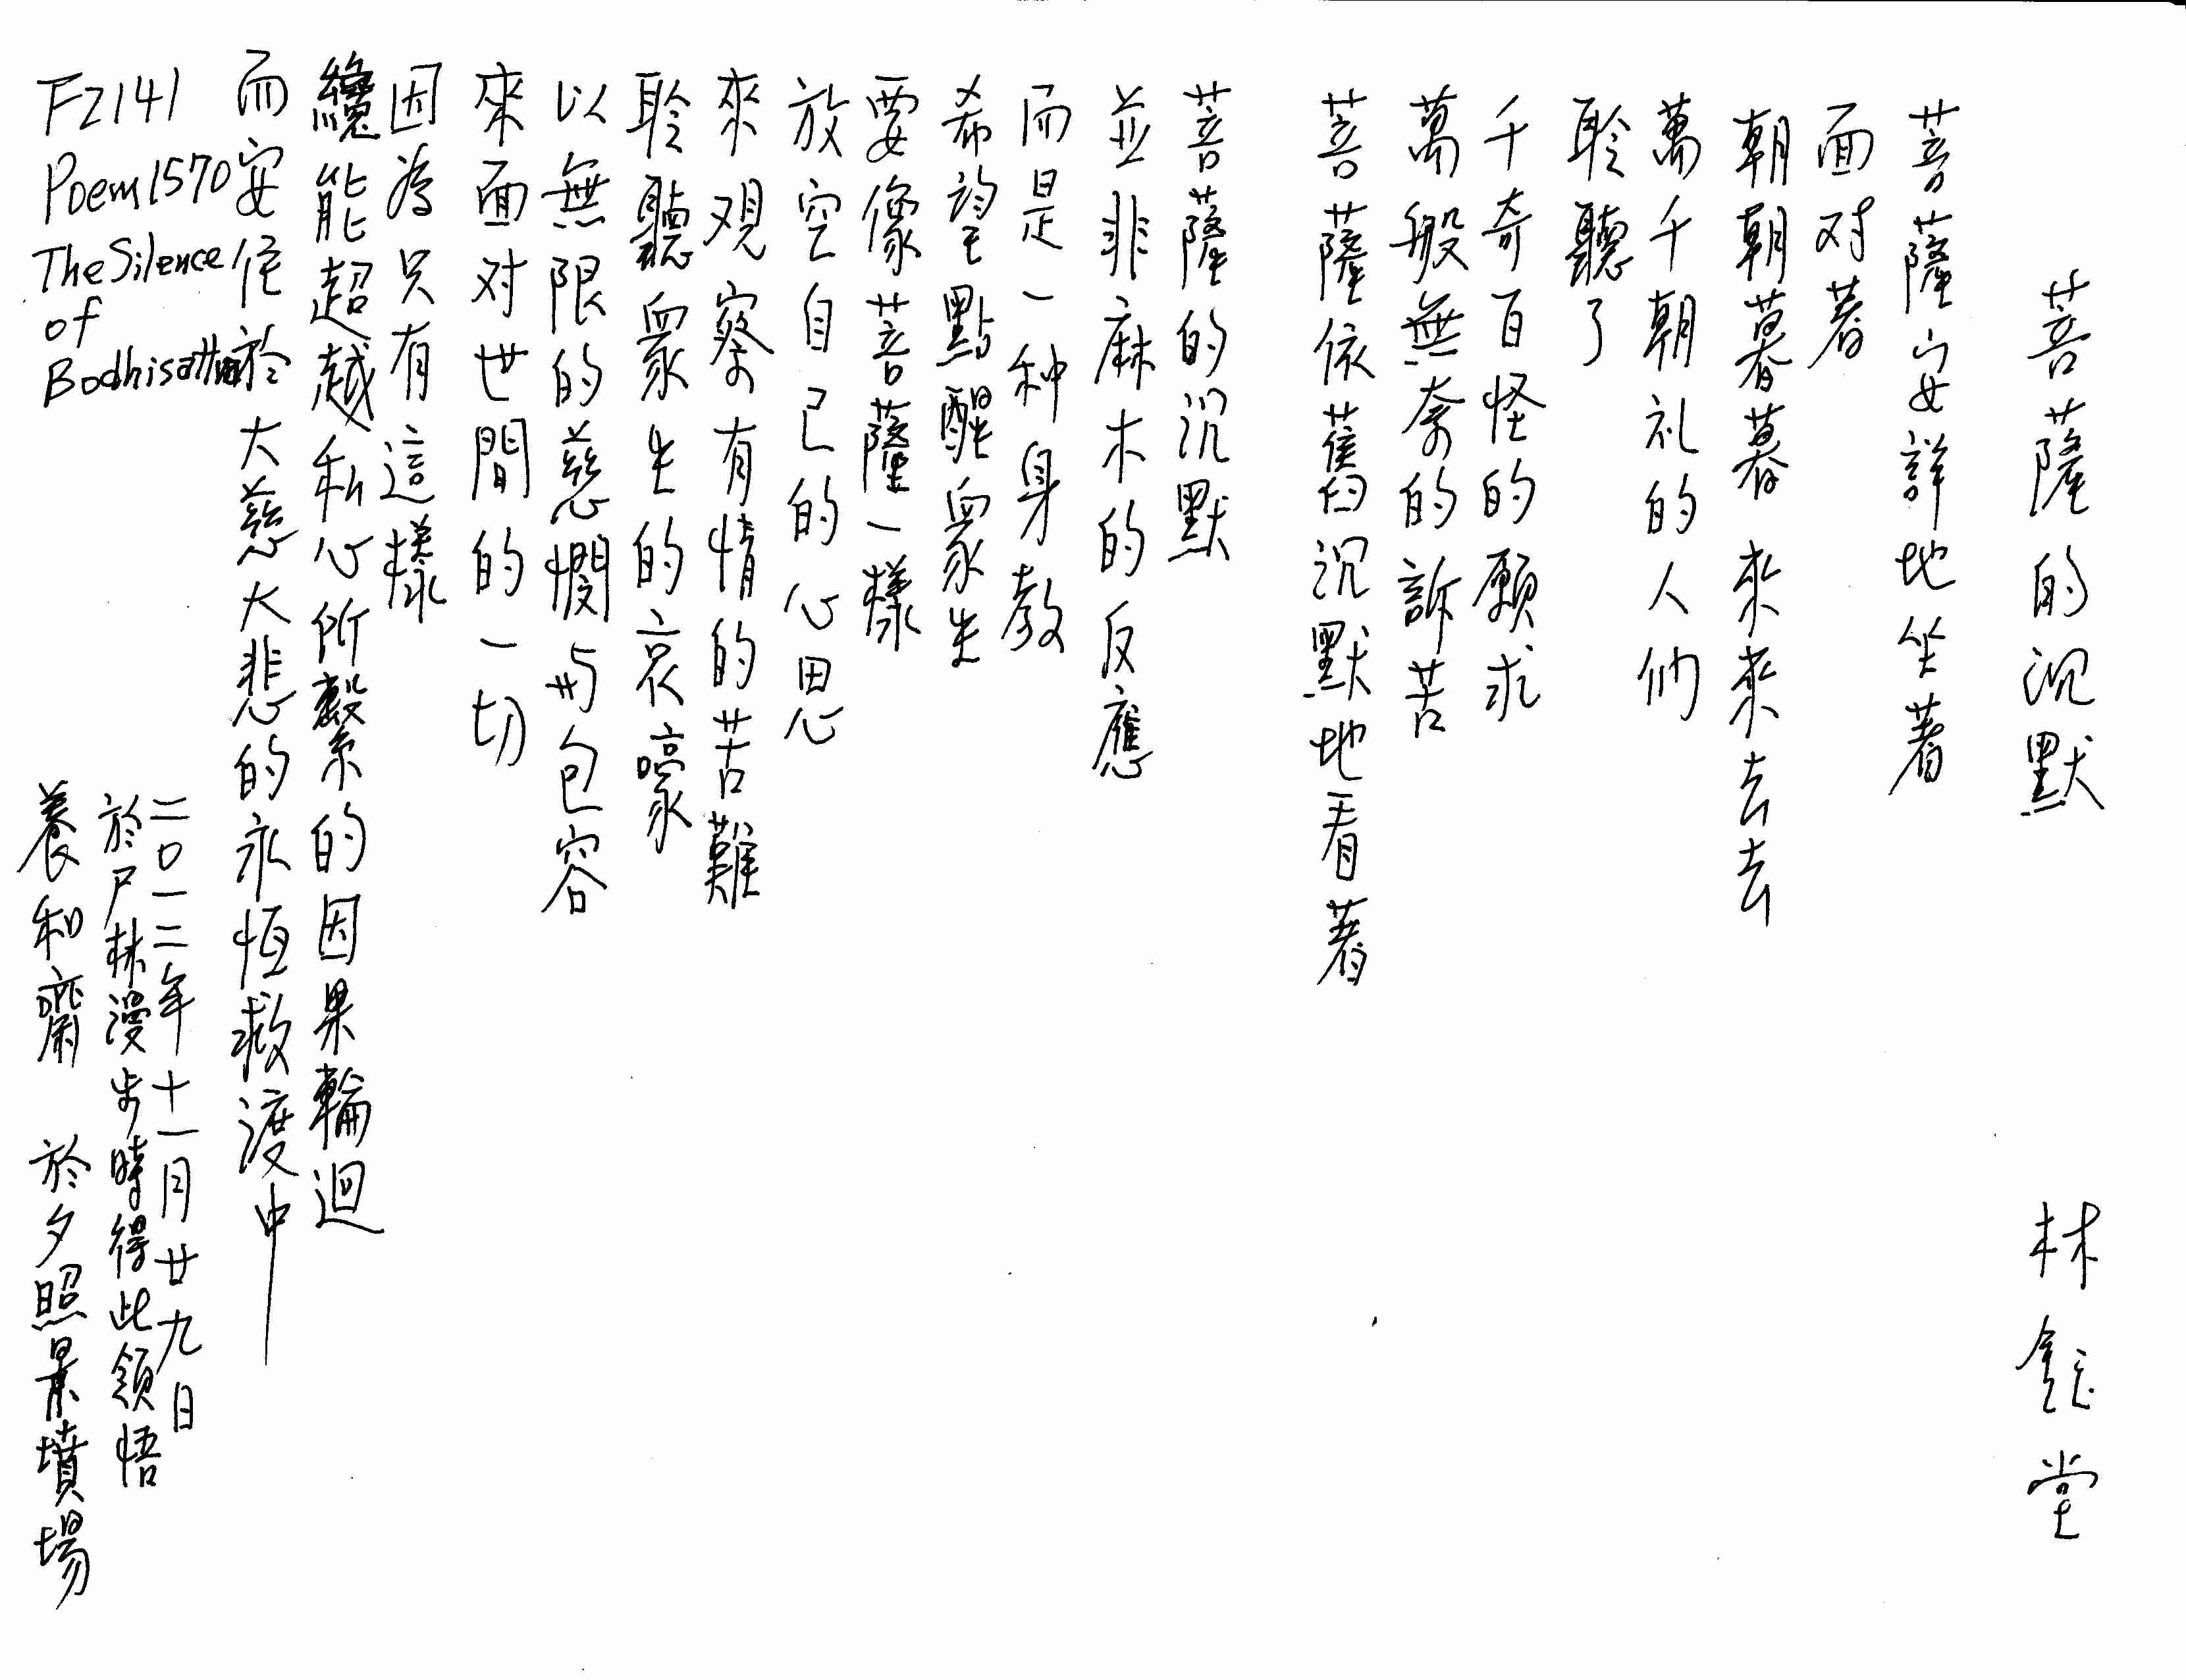 菩薩的沉默
林鈺堂
菩薩安詳地坐著
面对著
朝朝暮暮來來去去
萬千朝礼的人们
聆聽了
千奇百怪的願求
萬般無奈的訴苦
菩薩依舊沉默地看著
菩薩的沉默
並非麻木的反應
而是一种身教
希望點醒眾生
要像菩薩一樣
放空自已的心思
來观察有情的苦難
聆聽眾生的哀嚎
以無限的慈憫与包容
來面对世間的一切
因為只有這樣
纔能超越私心所繫的因果輪迴
而安住於大慈大悲的永恒救渡中
二〇一二年十一月廿九日
於尸林漫步時得此領悟
養和齋 於夕照景墳場
FZ141
Poem1570
The Silence
of
Bodhisattva